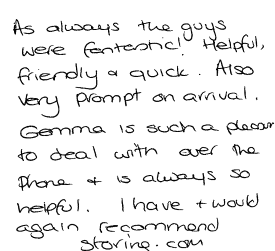 As always the guys
were fantastic! Helpful,
friendly & quick. Also
very prompt on arrival.
Gemma is such a pleasure
to deal with over the
phone + is always so
helpful. I have + would
again recommend
storing.com